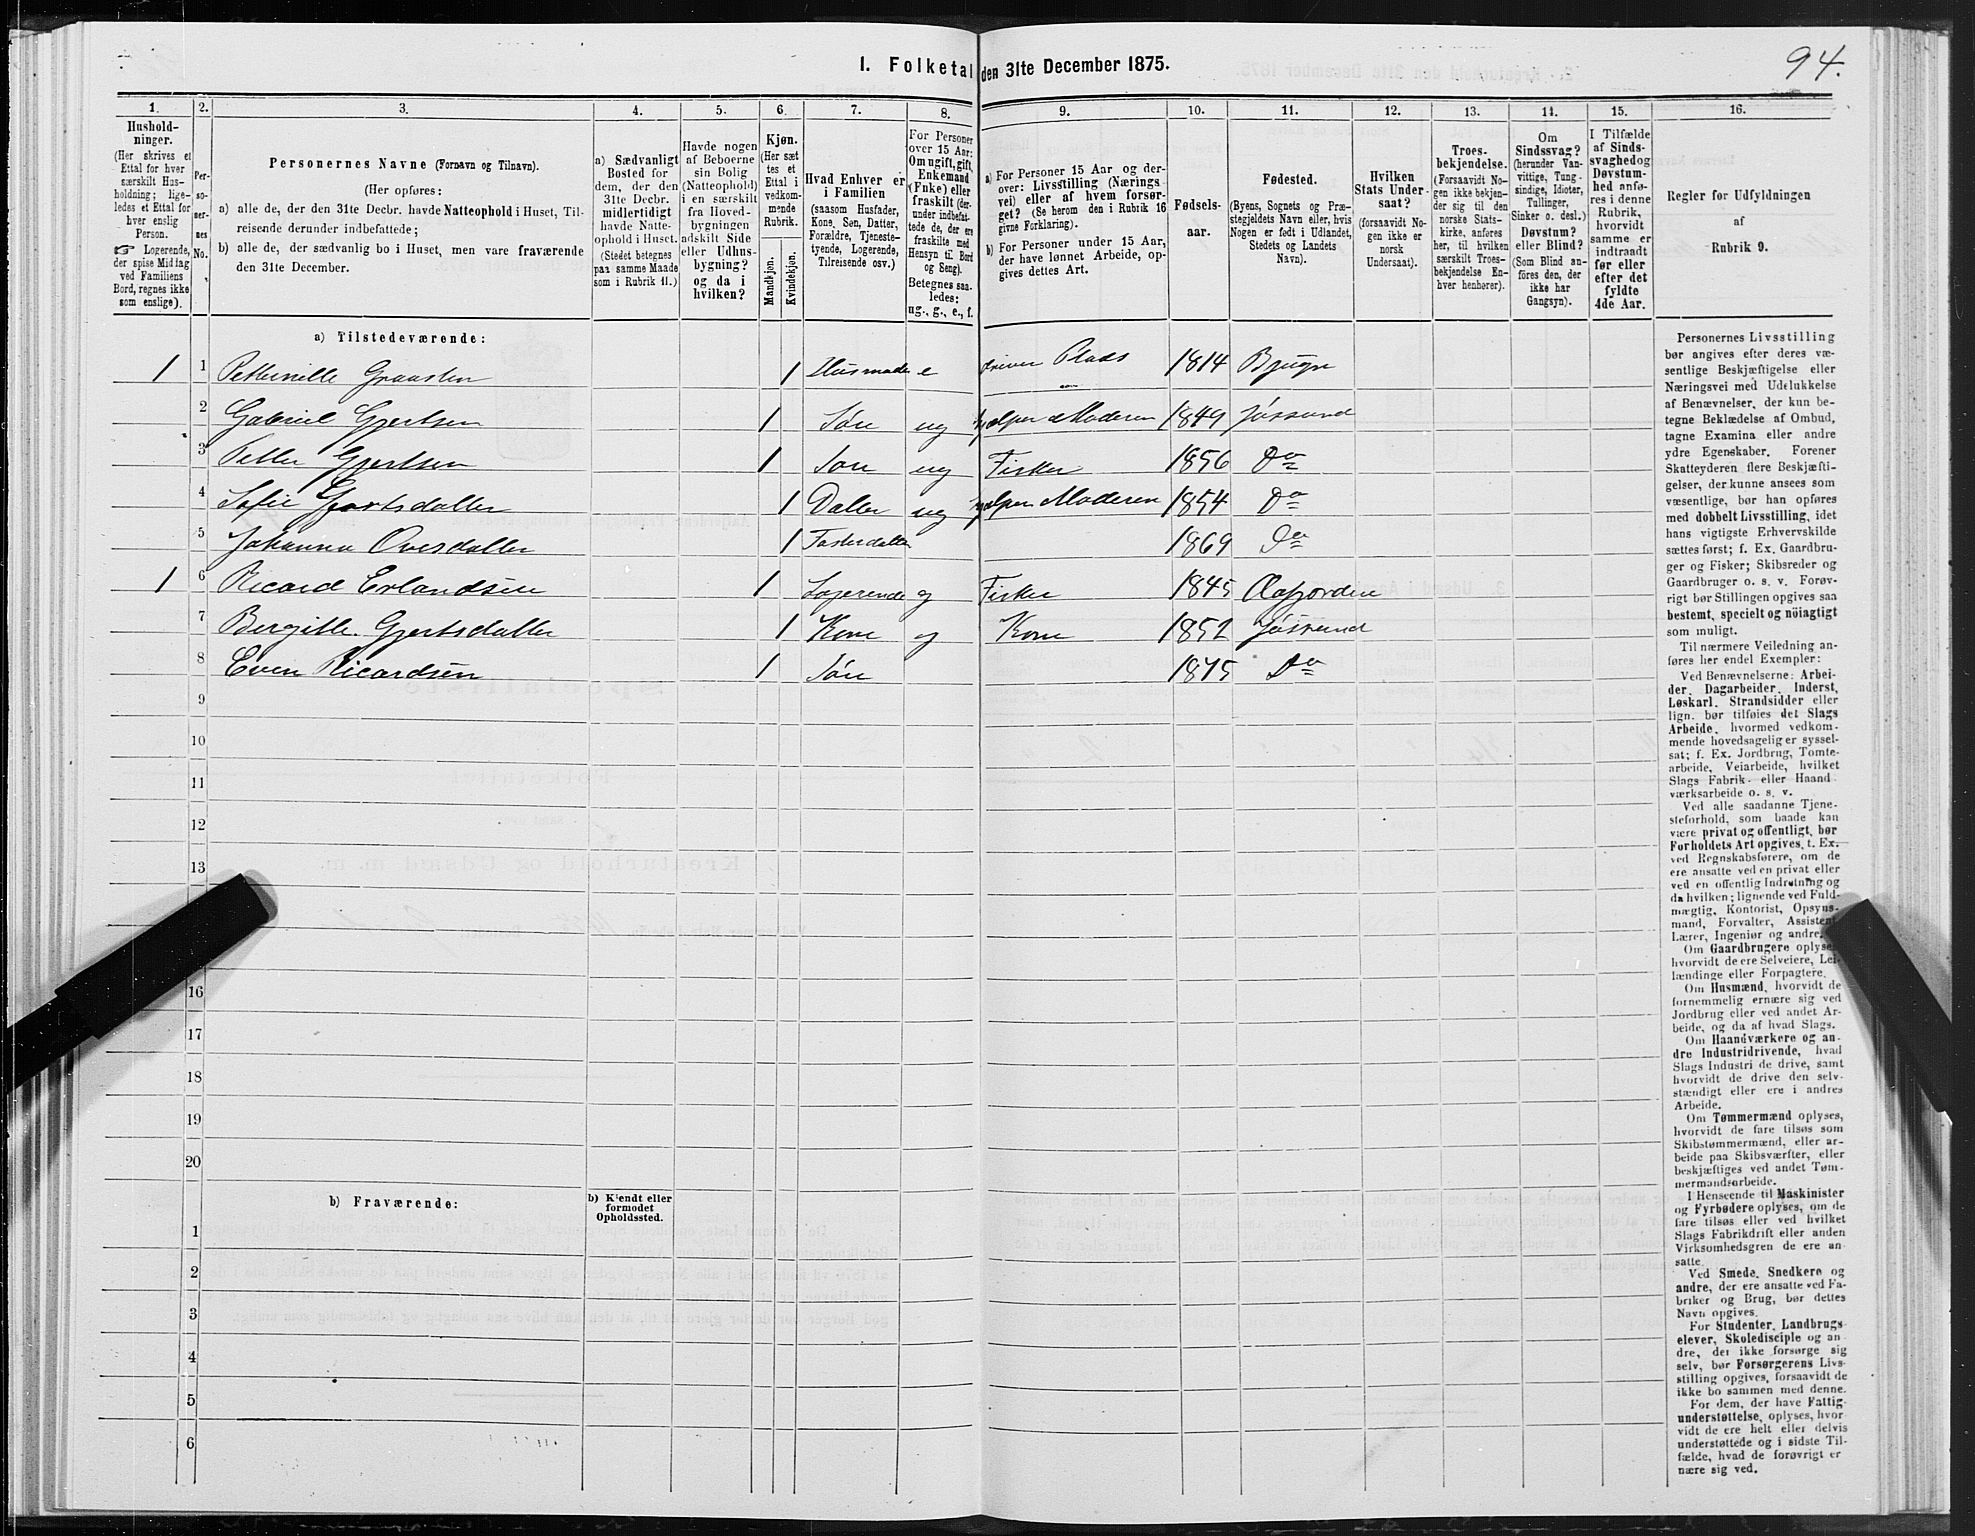 94.
I. Folketal den 31te December 1875.
1. 2. 3. 4. 5. 6. 7. 8. 9. 10. 11. 12. 13. 14. 15. 16.
Hushold-
ninger.
(Her skrives et
Ettal for hver
særskilt Hus-
holdning; lige-
ledes et Ettal for
hver enslig
Person.
☞ Logerende,
der spise Middag
ved Familiens
Bord, regnes ikke
som enslige).
Per-
so-
ner-
nes
No.
Personernes Navne (Fornavn og Tilnavn).
(Her opføres:
a) alle de, der den 31te Decbr. havde Natteophold i Huset, Til-
reisende derunder indbefattede;
b) alle de, der sædvanlig bo i Huset, men vare fraværende
den 31te December.
a) Sædvanligt
Bosted for
dem, der den
31te Decbr.
midlertidigt
havde Natte-
ophold i Huset.
(Stedet betegnes
paa samme Maade
som i Rubrik 11.)
Havde nogen
af Beboerne
sin Bolig
(Natteophold)
i en særskilt
fra Hoved-
bygningen
adskilt Side
eller Udhus-
bygning?
og da i
hvilken?
Kjøn.
(Her sæt
tes et
Ettal i
vedkom-
mende
Rubrik.
Mandkjøn.
Kvindekjøn.
Hvad Enhver er
i Familien
(saasom Husfader,
Kone, Søn, Datter,
Forældre, Tjeneste-
tyende, Logerende,
Tilreisende osv.)
For Personer
over 15 Aar:
Om ugift, gift,
Enkemand
(Enke) eller
fraskilt (der-
under indbefat-
tede de, der ere
fraskilte med
Hensyn til Bord
og Seng).
Betegnes saa-
ledes:
ug., g., e., f.
a) For Personer 15 Aar og der-
over: Livsstilling (Nærings
vei) eller af hvem forsør-
get? (Se herom den i Rubrik 16
givne Forklaring).
b) For Personer under 15 Aar,
der have lønnet Arbeide, op-
gives dettes Art.
Fødsels-
aar.
Fødested.
(Byens, Sognets og Præ-
stegjeldets Navn eller, hvis
Nogen er født i Udlandet,
Stedets og Landets
Navn).
Hvilken
Stats Under-
saat?
(forsaavidt No-
gen ikke er
norsk
Undersaat).
Troes-
bekjendelse.
(Forsaavidt No-
gen ikke bekjen-
der sig til den
norske Stats-
kirke, anføres
her, til hvilken
særskilt Troes-
bekjendelse En-
hver henhører).
Om
Sindssvag?
(herunder Van-
vittige, Tung-
sindige, Idioter,
Tullinger,
Sinker o. desl.)
Døvstum?
eller Blind?
(Som Blind an-
føres den, der
ikke har
Gangsyn).
I Tilfælde
af Sinds-
svaghed og
Døvstum-
hed anfø-
res i denne
Rubrik,
hvorvidt
samme er
indtraadt
før eller
efter det
fyldte
4de Aar.
Regler for Udfyldningen
af
Rubrik 9.
a) Tilstedeværende:
1 1 Petternille Graasten 1 Husmoder e driver Plads 1814 Bjugn
2 Gabriel Gjertsen 1 Søn ug hjelper Moderen 1849 Jøssund
3 Petter Gjertsen 1 Søn ug Fisker 1856 Do
4 Sofie Gjertsdatter 1 Datter ug hjelper Moderen 1854 Do
5 Johanna Ovesdatter 1 Fosterdatter 1869 Do
1 6 Ricard Erlandsen 1 Logerende g Fisker 1845
7 Bergitte Gjertsdatter 1 Kone g Kone 1852 Jøssund
8 Even Ricardsen 1 Søn 1875 Do
9
10
11
12
13
16
17
18
19
20
b) Fraværende:
b) Kjendt eller
formodet
Opholdssted.
1
2
3
4
5
6
Personernes Livsstilling
bør angives efter deres væ-
sentlige Beskjæftigelse eller
Næringsvei med Udelukkelse
af Benævnelser, der kun be-
tegne Beklædelse af Ombud,
tagne Examina eller andre
ydre Egenskaber. Forener
Skatteyderen flere Beskjæfti-
gelser, der kunne ansees som
væsentlige, bør han opføres
med dobbelt Livsstilling, idet
hans vigtigste Erhvervskilde
sættes først; f. Ex. Gaardbru-
ger og Fisker; Skibsreder og
Gaardbruger o. s. v. Forøv-
rigt bør Stillingen opgives saa
bestemt, specielt og nøiagtigt
som muligt.
Til nærmere Veiledning an-
føres her endel Exempler:
Ved Benævnelserne: Arbei-
der, Dagarbeider, Inderst,
Løskarl, Strandsidder eller
lign. bør tilføies det Slags
Arbeide, hvormed vedkom-
mende hovedsagelig er syssel-
sat; f. Ex. Jordbrug, Tomte-
arbeide, Veiarbeide, hvilket
Slags Fabrik- eller Haand
værksarbeide o. s. v.
Ved alle saadanne Tjene-
steforhold, som baade kan
være privat og offentligt, bør
Forholdets Art opgives, t. Ex.
ved Regnskabsførere, om de
ere ansatte ved en privat eller
ved en offentlig Indretning og
da hvilken; lignende ved Fuld-
mægtig, Kontorist, Opsyns-
mand, Forvalter, Assistent,
Lærer, Ingeniør og andre.
Om Gaardbrugere oplyses,
hvorvidt de ere Selveiere, Lei-
lændinge eller Forpagtere.
Om Husmænd, hvorvidt de
fornemmelig ernære sig ved
Jordbrug eller ved andet Ar-
beide, og da af hvad Slags.
Om Haandværkere og an-
dre Industridrivende, hvad
Slags Industri de drive, samt
hvorvidt de drive den selv-
stændigt eller ere i andres
Arbeide.
Om Tømmermænd oplyses,
hvorvidt de fare tilsøs som
Skibstømmermænd, eller ar-
beide paa Skibsværfter, eller
beskjæftiges ved andet Tøm-
mermandsarbeide.
I Henseende til Maskinister
og Fyrbødere oplyses, om de
fare tilsøs eller ved hvilket
Slags Fabrikdrift eller anden
Virksomhedsgren de ere an-
satte.
Ved Smede, Snedkere og
andre, der ere ansatte ved Fa-
briker og Brug, bør dettes
Navn opgives.
For Studenter, Landbrugs-
elever, Skoledisciple og an-
dre, der ikke forsørge sig
selv, bør Forsørgerens Livs-
stilling opgives, forsaavidt de
ikke bo sammen med denne.
For dem, der have Fattig-
understøttelse, oplyses, hvor-
vidt de ere helt eller delvis
understøttede og i sidste Til-
fælde, hvad de forøvrigt er-
nære sig ved.